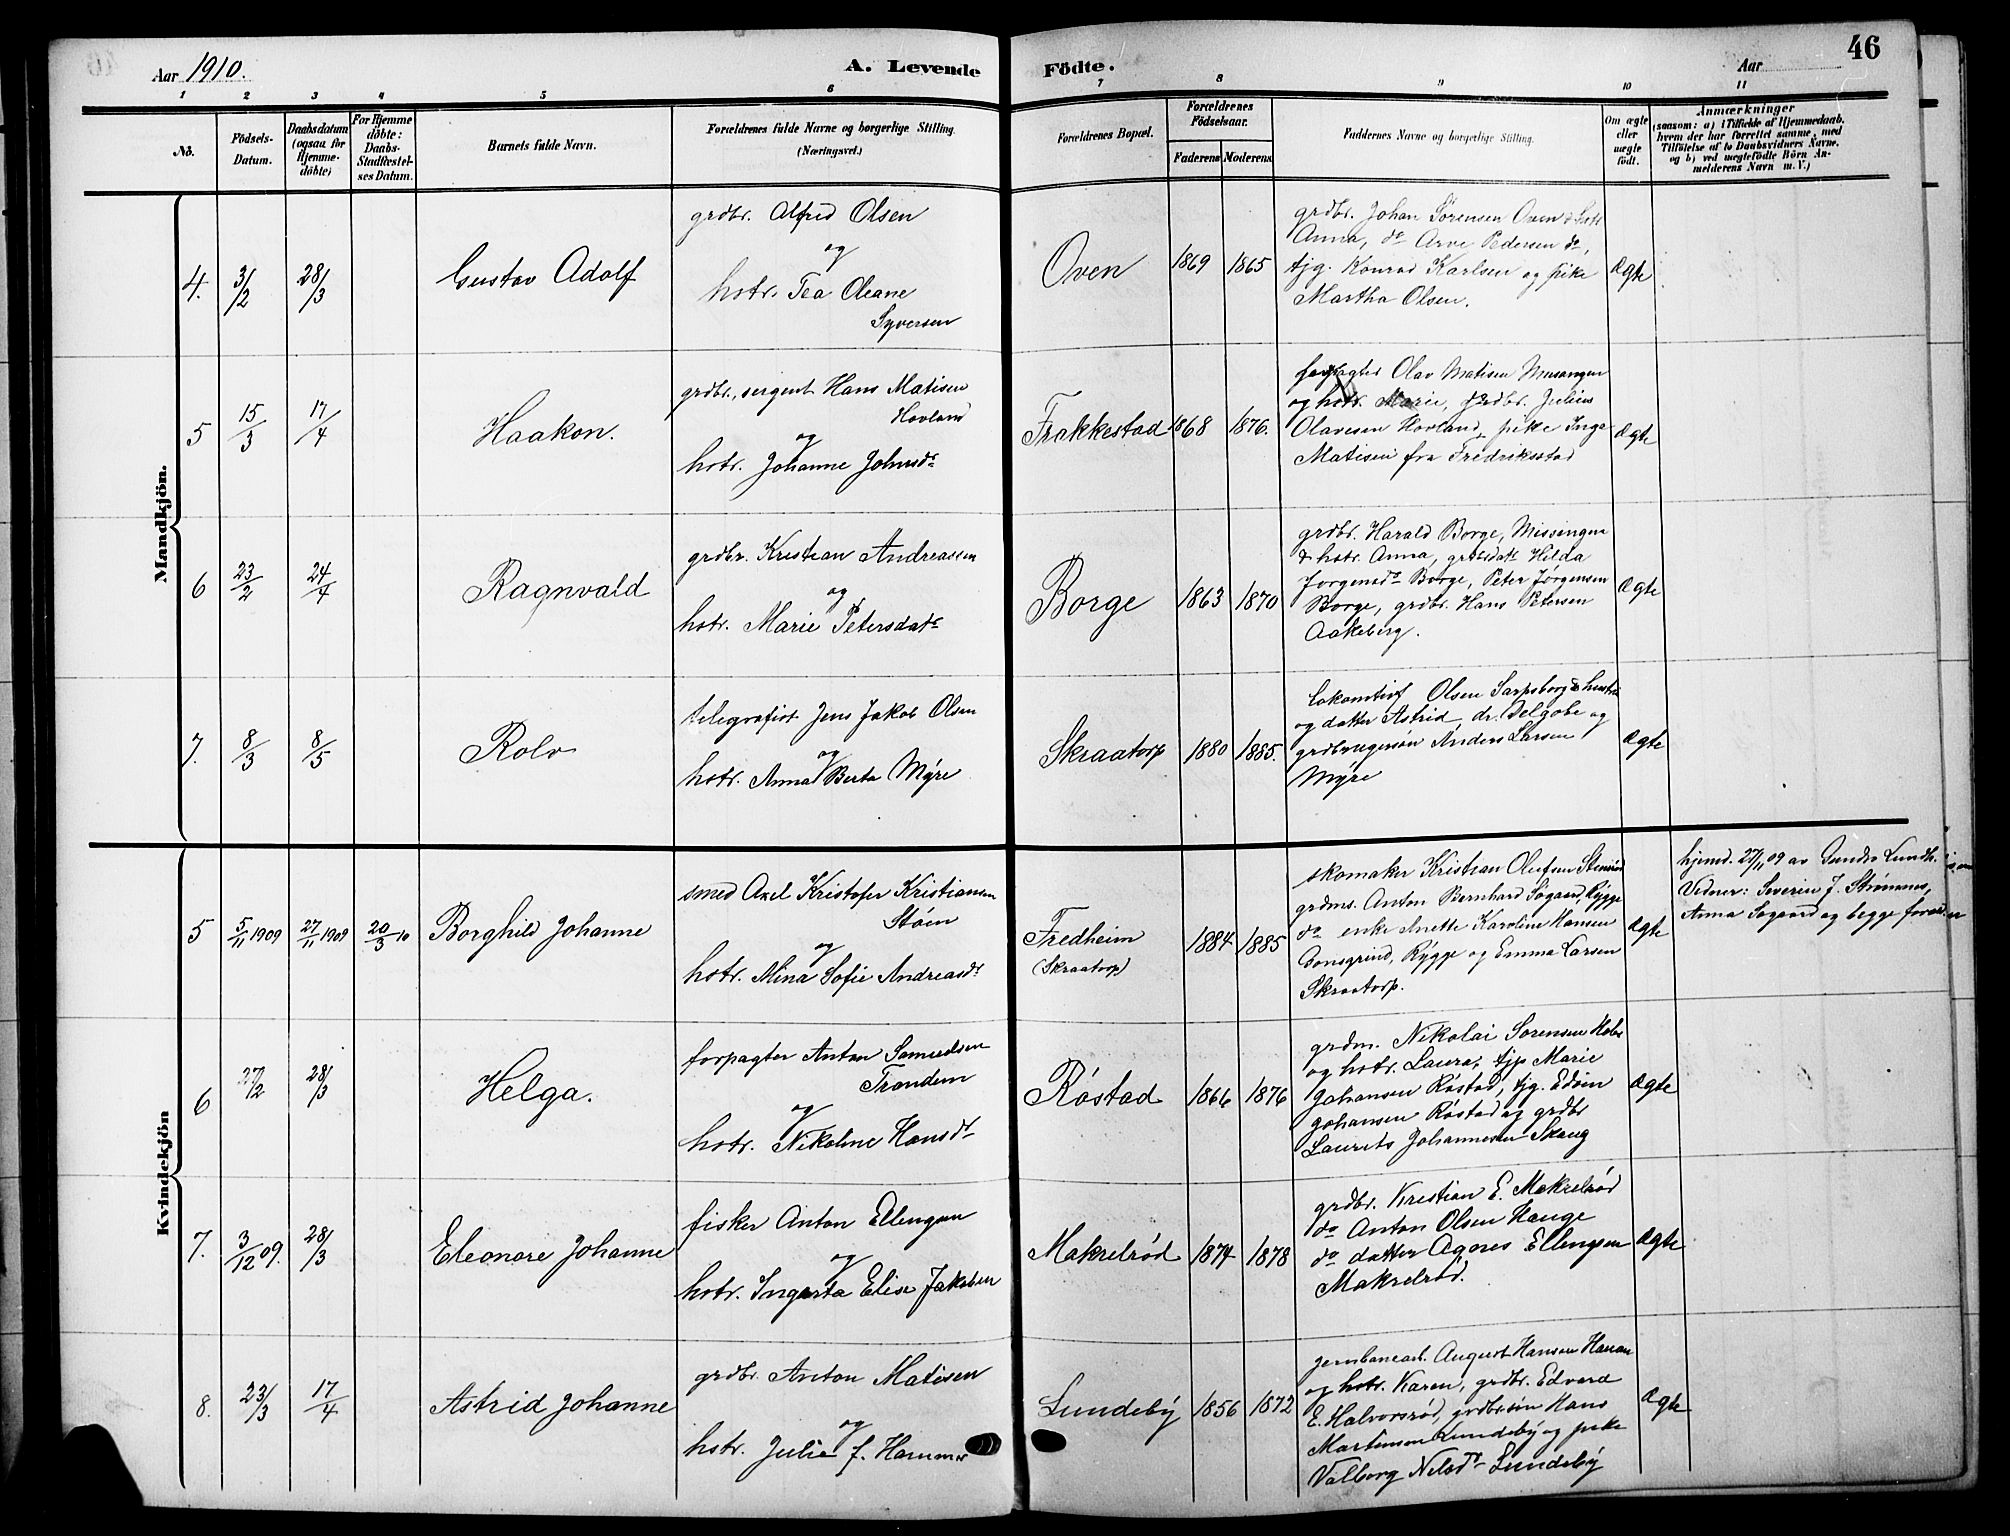 46
Aar 1910.
A. Levende Födte.
Aar
1 2 3 4 5 6 7 8 9 10 11
No.
Födsels-Datum.
Daabsdatum (ogsaa for Hjemme-döbte)
For Hjemme döbte: Daabs-Stadfæstel-ses Datum.
Barnets fulde Navn.
Forældrenes fulde Navne og borgerlige Stilling.
(Næringsvei.)
Forældrenes Bopæl.
Forældrenes Födselsaar.
Faderens Moderens
Faddernes Navne og borgerlige Stilling.
Om ægte eller uægte födt.
Anmærkninger
(saasom: a) i Tilfælde af Hjemmedaab.
hvem der har forrettet samme, med
Tilföielse af to Daabsvidners Navne.
og b) ved uægtefödte Börn An-
melderens Navn m. V.)
Mandkjön.
4. 3/2 28/3
Gustav Adolf
grdbr. Alfred Olsen
og
hstr. Tea Oleane
Syversen
Oven 1869 1865
grdbr. Johan Sörensen Oven &
Anna, do Arve Pedersen do,
tjg. Konrad Karlsen og pike
Martha Olsen.
Ægte
5 15/3 17/4
Haakon.
grdbr., sergent Hans Matisen
Hovland
og
hstr. Johanne Johnsdr
Frakkestad 1868 1876.
forpagter Olav Matisen
og hstr. Marie, grdbr. Julius
Olavesen Hovland, pike Inga
Matisen fra Fredriksstad
Ægte
6 23/2 24/4
Ragnvald
grdbr. Kristian Andreassen
og
hstr. Marie Petersdatr
Borge 1863 1870
grdbr. Harald Borge, Missingen
& hstr. Anna, Hilda
Jorgensdr Borge, Peter Jörgensen
Borge, grdbr. Hans Petersen
Aakeberg.
Ægte
7. 8/3 8/5
Rolv
telegrafist Jens Jakob Olsen
og
hstr. Anna Berta Mýre
Skraatorp 1880 1885.
Olsen Sarpsborg & hustru
og datter Astrid, dr. Delgobe og
grdbrugersön Anders Larsen
Mýre
Ægte
Kvindekjön
5 5/11 1909 27/11 1909 20/3 10
Borghild Johanne
smed Axel Kristofer Kristiansen
Støen
og
hstr. Mina Sofie Andreasdr
Fredheim
(Skraatorp)
1884 1885
skomaker Kristian Olufsen
grdms. Anton Bernhard Sogaard, Rygge
do enke Anette Karoline Hansen
Rýgge og Emma Larsen
Skraatorp.
Ægte
hjemd. 27/11 09 av Lundh.
Vidner: Severin J. Strömnes,
Anna Sogaard og begge
6 27/2 28/3
Helga.
forpagter Anton Samuelsen
Trondem
og
hstr. Nikoline Hansdr
Röstad 1866 1876
grdm. Nikolai Sorensen
og hstr. Laura, tjp Marie
Johansen Röstad, tjg. Edvin
Johansen Röstad og grdbr
Laurits Johannesen Skaug
Ægte
7. 3/12 09. 28/3
Eleonore Johanne
fisker Anton Ellingsen
og
hstr. Ingarta Elise Jakobsen
Makrelröd 1874 1878
grdbr. Kristian E. Makrelröd
do Anton Olsen Hauge
do datter Agnes Ellingsen
Makrelröd.
Ægte
8. 23/3 17/4
Astrid Johanne
grdbr. Anton Matisen
og
hstr. Julie f. Hammer
Lundebý 1856 1872
jernbanearb. August Hansen
og hstr. Karen, grdbr. Edvard
E. Halvorsröd, grdbrsön Hans
Martinsen Lundebý og pike
Valborg Nilsdr Lundebý
Ægte